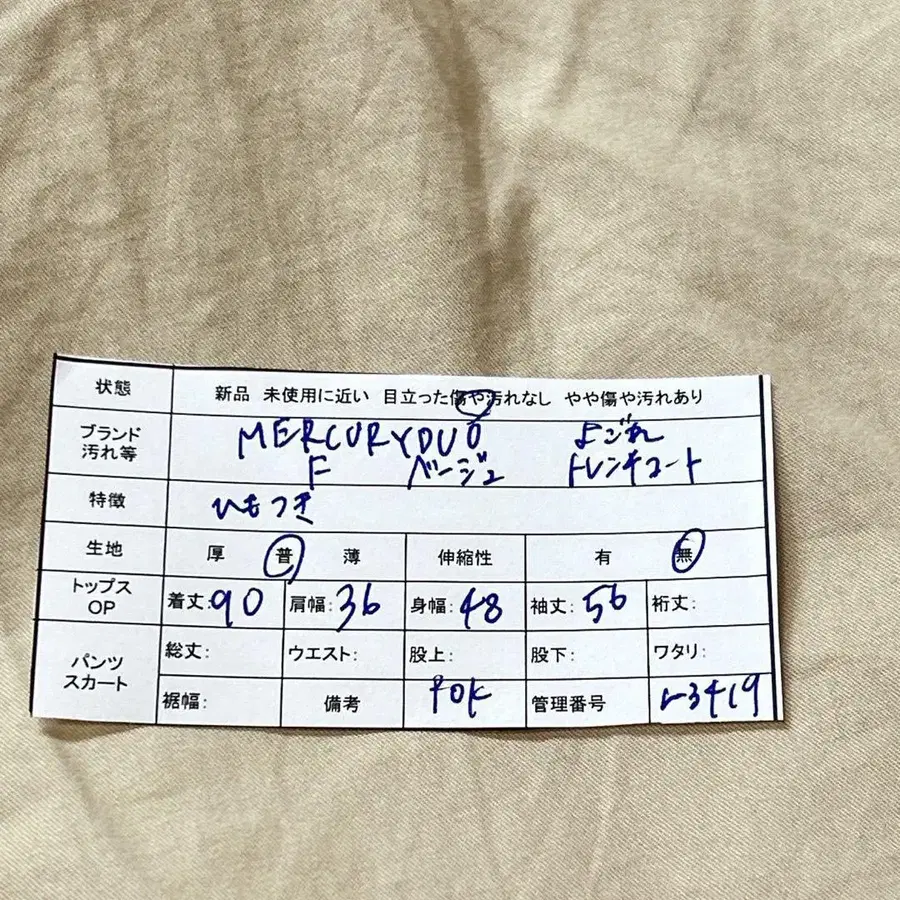 状態 新品 未使用に近い 目立った傷や汚れなし やや傷や汚れあり
ブランド MERCURYDUO よごれ
汚れ等 F ベージュ トレンチコート
特徴 ひもつき
生地 厚 普 薄 伸縮性 有 無
トップス OP 着丈:90 肩幅:36 身幅:48 袖丈:56 裄丈:
パンツ スカート 総丈: ウエスト: 股上: 股下: ワタリ:
裾幅: 備考 管理番号